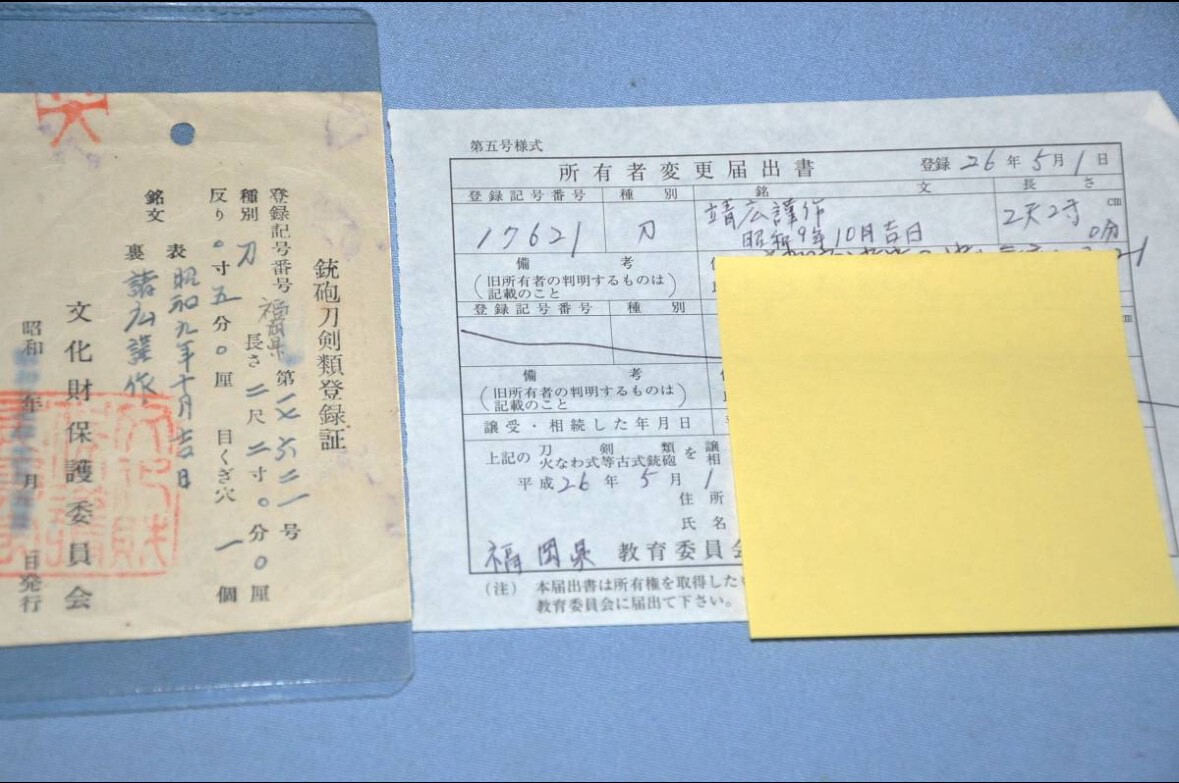 銃砲刀剣類登録証
登録記号番号 福岡県 第一七六二一号
種別 刀 長さ 二尺二寸〇分〇厘
反り 〇寸五分〇厘 目くぎ穴 一個
銘文 表 昭和九年十月吉日
裏 靖広謹作
昭和 年 月 日発行
文化財保護委員会
第五号様式
所有者変更届出書 登録 26年5月1日
登録記号番号 種別 銘文 長さ
17621 刀 靖広謹作 2尺2寸 cm
昭和9年10月吉日 0分
備考
(旧所有者の判明するものは
記載のこと)
登録記号番号 種別 cm
備考
(旧所有者の判明するものは
記載のこと)
譲受・相続した年月日
上記の 刀剣類 を 譲
火なわ式等古式銃砲 相
平成26年5月1
住所
氏名
福岡県 教育委員会
(注) 本届出書は所有権を取得した
教育委員会に届出て下さい。